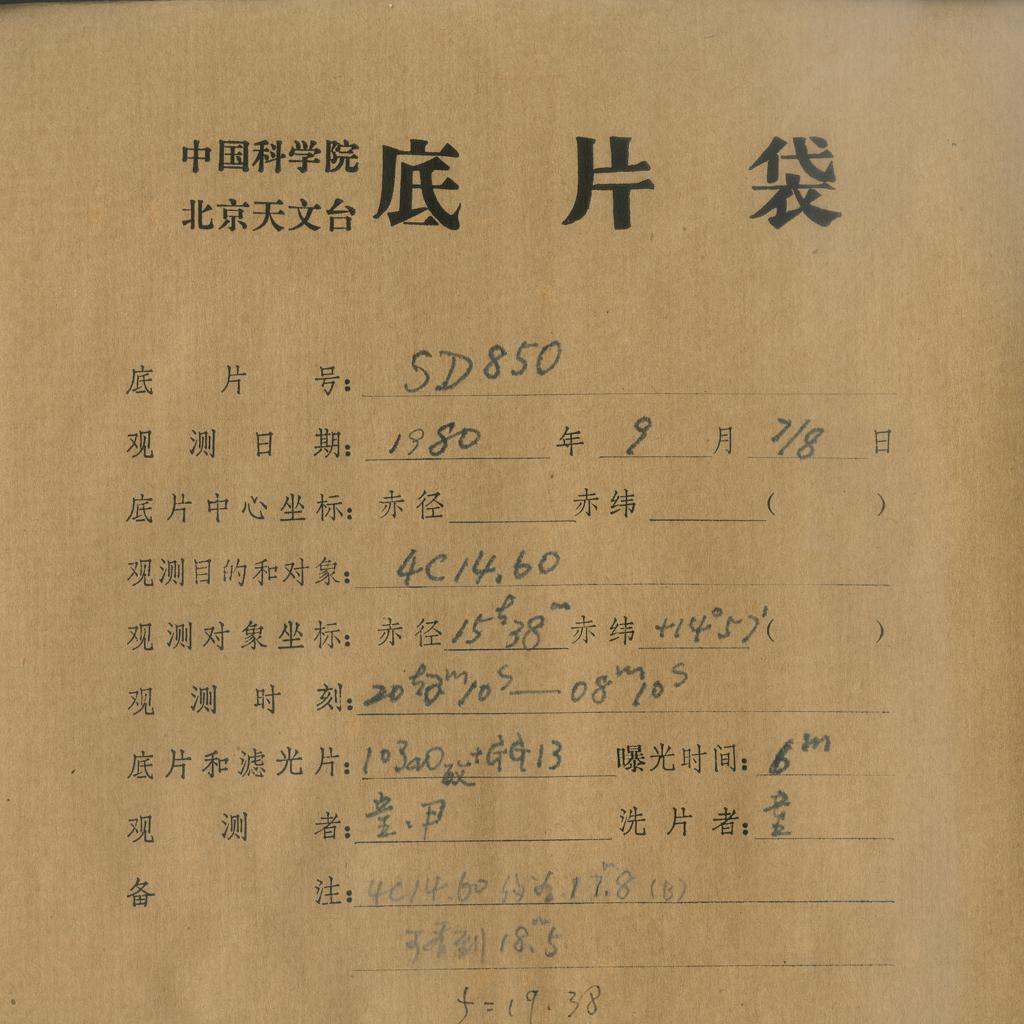 中国科学院
北京天文台 底片袋
底片号: SD850
观测日期: 1980 年 9 月 7/8 日
底片中心坐标: 赤径 赤纬 ( )
观测目的和对象: 4C14.60
观测对象坐标: 赤径 15ʰ38ᵐ 赤纬 +14°57′ ( )
观测时刻: 20ʰ ᵐ10ˢ—08ᵐ10ˢ
底片和滤光片: 103aO敏+GG13 曝光时间: 6ᵐ
观测者: 童、尹 洗片者: 童
备注: 4C14.60 约为 17ᵐ.8 (B)
可看到 18ᵐ.5
=19.38